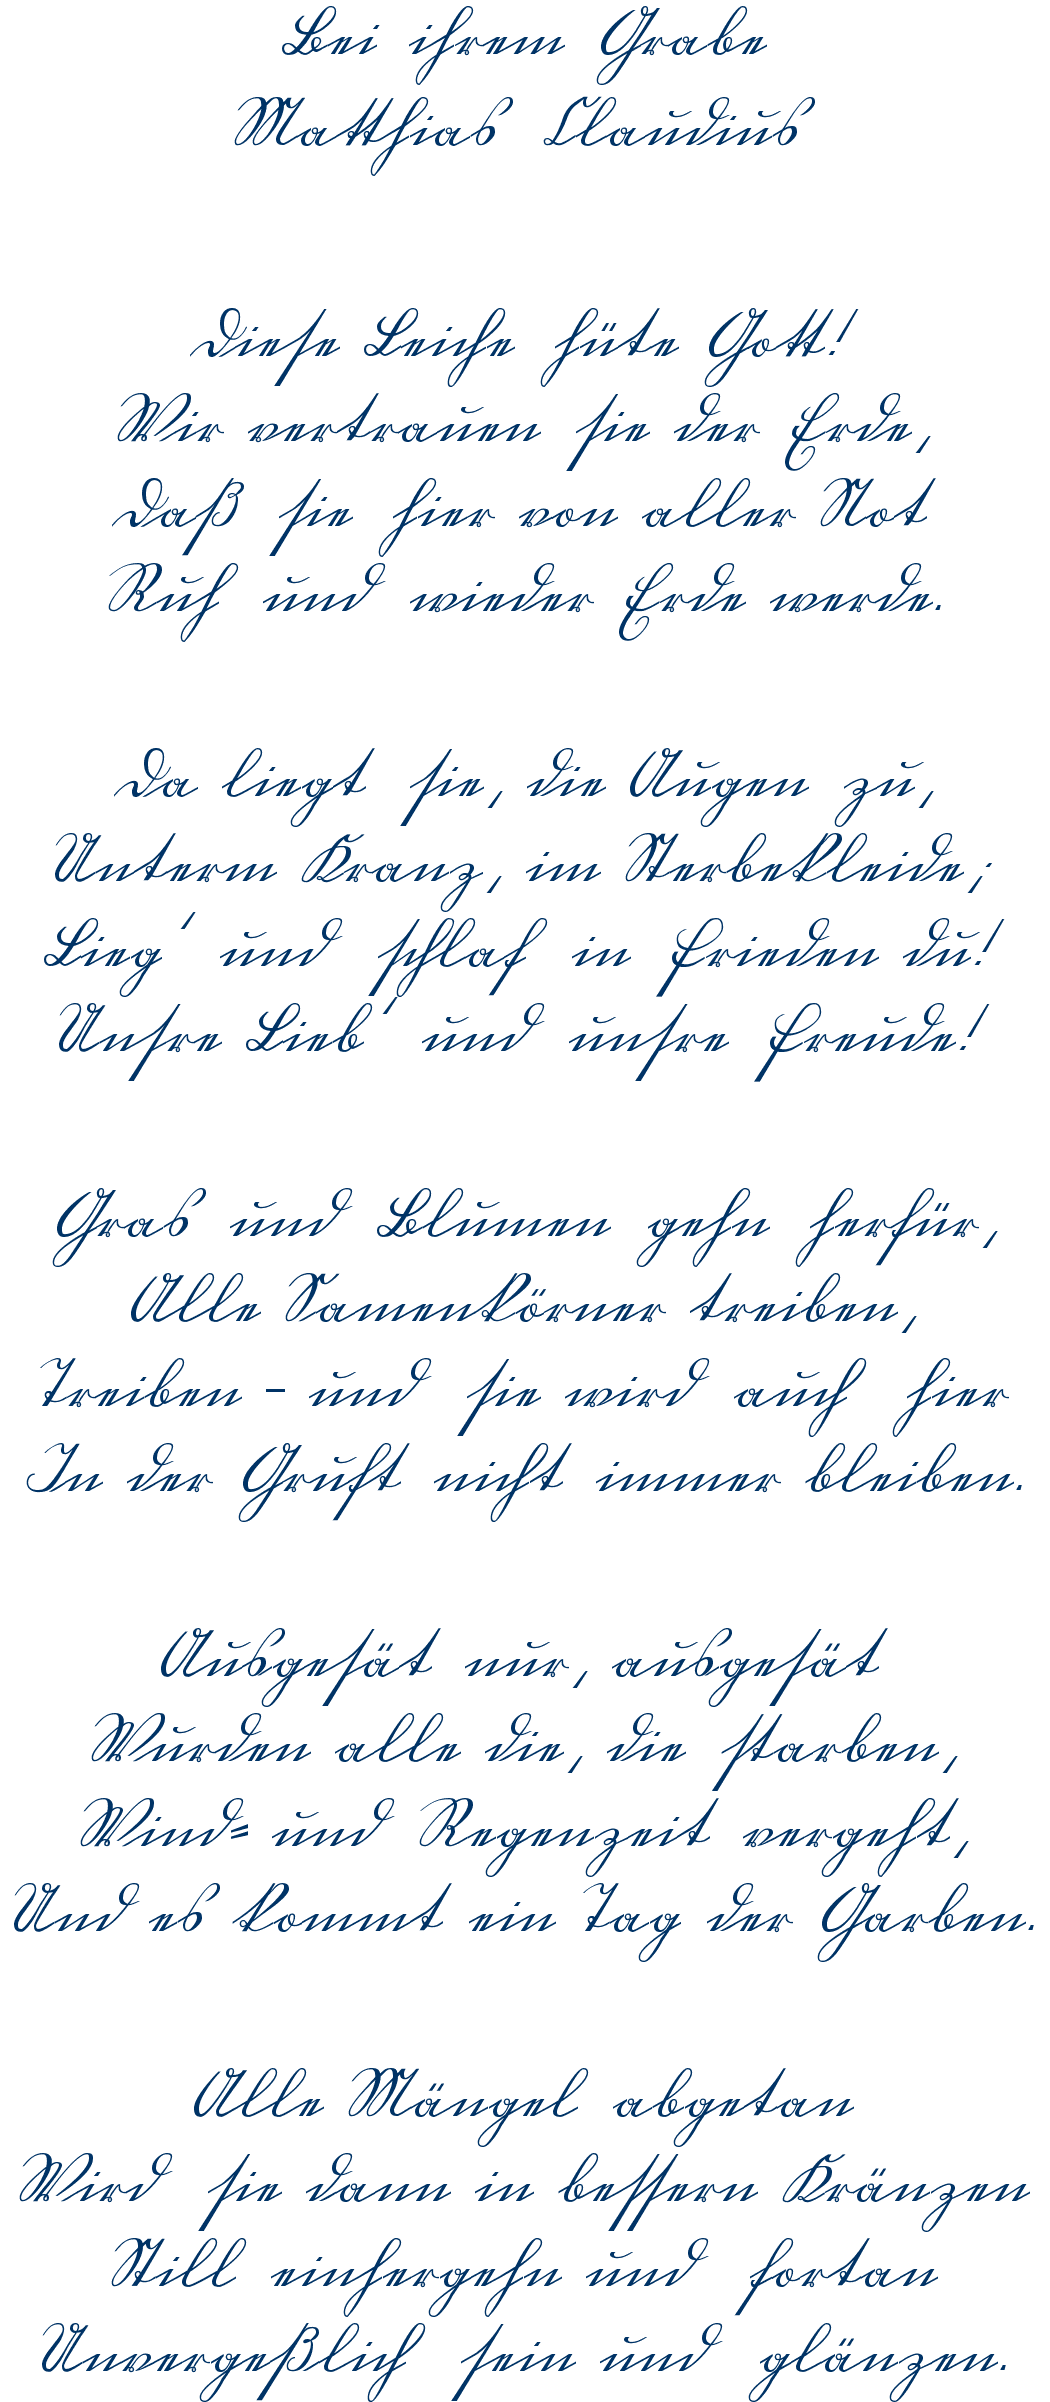 Bei ihrem Grabe
Matthias Claudius
Diese Leiche hüte Gott!
Wir vertrauen sie der Erde,
Daß sie hier von aller Not
Ruh und wieder Erde werde.
Da liegt sie, die Augen zu,
Unterm Kranz, im Sterbekleide;
Lieg' und schlaf in Frieden du!
Unsre Lieb' und unsre Freude!
Gras und Blumen gehn herfür,
Alle Samenkörner treiben,
Treiben - und sie wird auch hier
In der Gruft nicht immer bleiben.
Ausgesät nur, ausgesät
Wurden alle die, die starben,
Wind= und Regenzeit vergeht,
Und es kommt ein Tag der Garben.
Alle Mängel abgetan
Wird sie dann in bessern Kränzen
Still einhergehn und fortan
Unvergeßlich sein und glänzen.